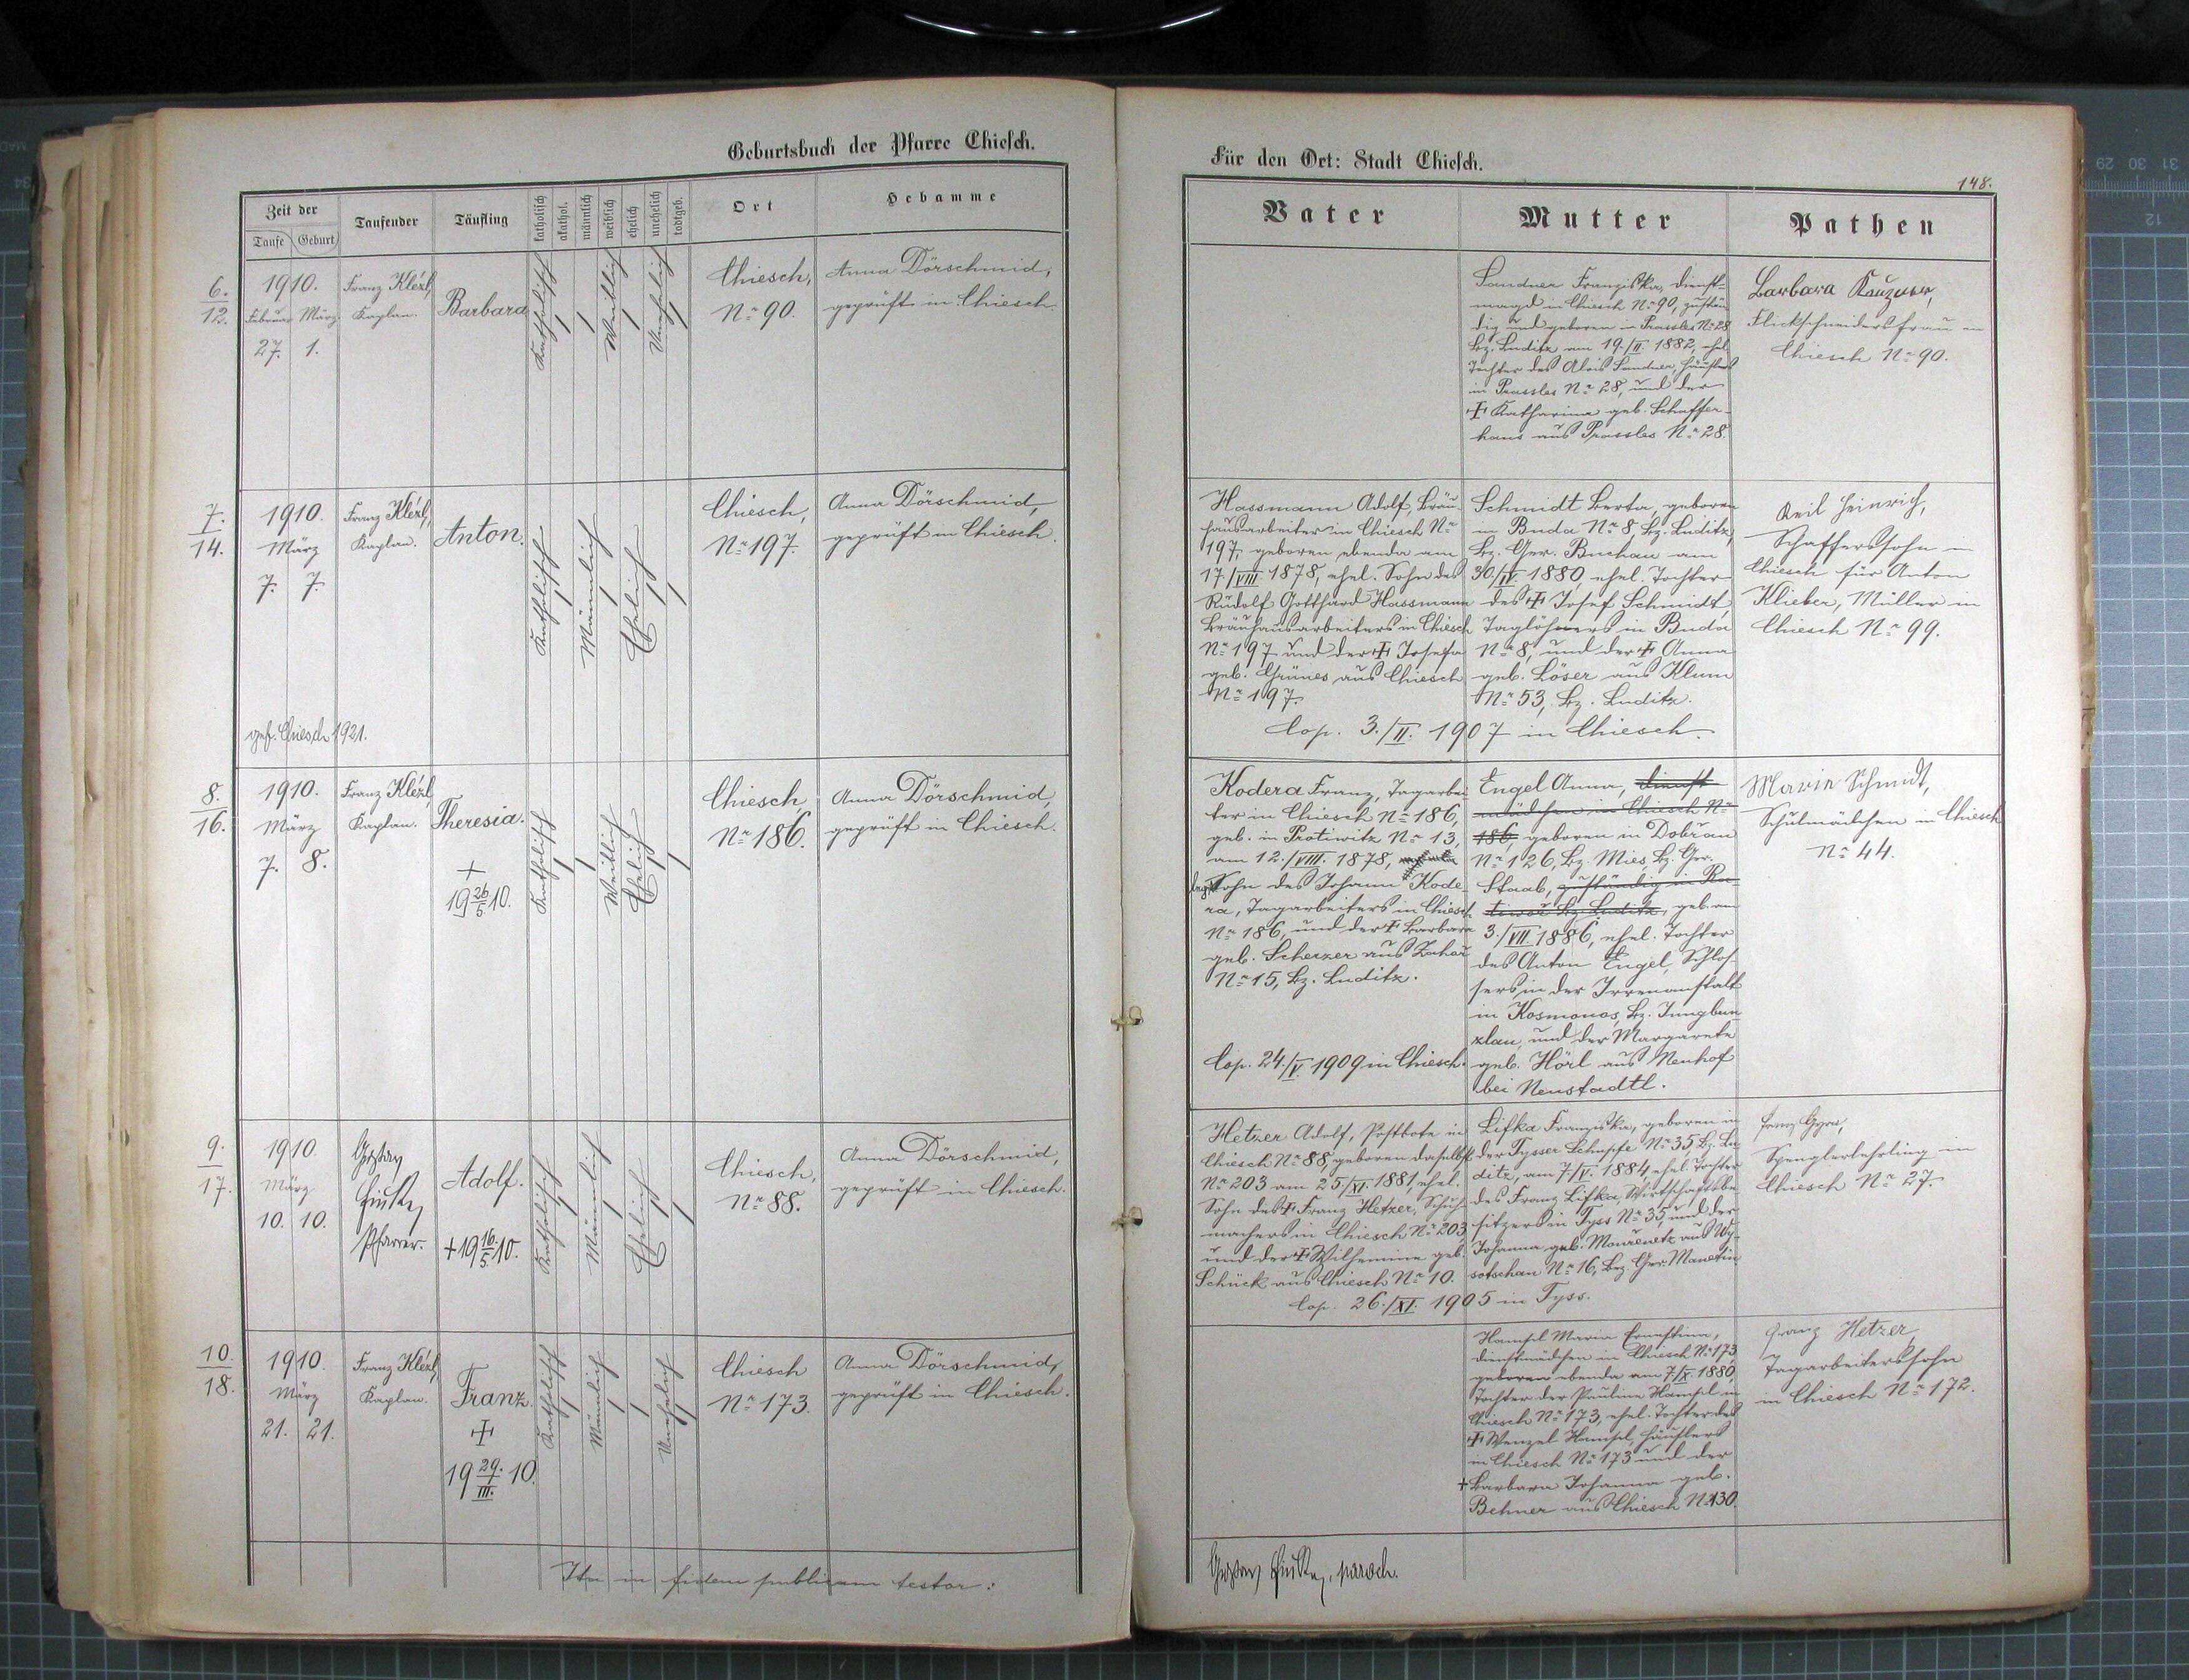 Geburtsbuch der Pfarre Chiesch.
Zeit der
Taufe Geburt
Taufender
Täufling
katholisch
akathol.
männlich
weiblich
ehelich
unehelich
todtgeb.
Ort
Hebamme
6.
12.
1910.
Februar März
27. 1.
Franz Klézl,
Kaplan.
Barbara
Katholisch
Weiblich
Unehelich
Chiesch,
No 90.
Anna Dörschmid,
geprüft in Chiesch.
7.
14.
1910.
März
7. 7.
gef. Chiesch 1921.
Franz Klézl,
Kaplan.
Anton.
Katholisch
Männlich
Ehelich
Chiesch,
No 197.
Anna Dörschmid,
geprüft in Chiesch.
8.
16.
1910.
März
7. 8.
Franz Klézl,
Kaplan.
Theresia.
+
19 26/5 10.
Katholisch
Weiblich
Ehelich
Chiesch
No 186.
Anna Dörschmid,
geprüft in Chiesch.
9.
17.
1910.
März
10. 10.
Gustav
Pfarrer.
Adolf.
+ 19 16./5. 10.
Katholisch
Männlich
Ehelich
Chiesch,
No 88.
Anna Dörschmid,
geprüft in Chiesch.
10.
18.
1910.
März
21. 21.
Franz Klézl,
Kaplan.
Franz.
+
19 29./III. 10.
Katholisch
Männlich
Unehelich
Chiesch
No 173.
Anna Dörschmid,
geprüft in Chiesch.
Ita in fidem publicam testor:
Für den Ort: Stadt Chiesch.
148.
Vater
Mutter
Pathen
Sandner Franziska, Dienst-
magd in Chiesch No 90, zustän-
dig und geboren in Prassles No 28
Bz. Luditz am 19./II. 1882, ehel.
Tochter des Alois Sandner, Häuslers
in Prassles No 28, und der
+ Katharina geb. Schaffer-
hans aus Prassles No 28.
Barbara Kauzner,
Flickschneidersfrau in
Chiesch No 90.
Hassmann Adolf, Bräu-
hausarbeiter in Chiesch No
197, geboren ebenda am
17./VIII. 1878, ehel. Sohn des
Rudolf Gotthard Hassmann
Bräuhausarbeiters in Chiesch
No 197 und der + Josefa
geb. Grünes aus Chiesch
No 197.
Schmidt Berta, geboren
in Buda No 8, Bz. Luditz,
Bz. Ger. Buchau am
30./IV. 1880, ehel. Tochter
des + Josef Schmidt,
Taglöhners in Buda
No 8, und der + Anna
geb. Löser aus Klum
No 53, Bz. Luditz.
Cop. 3./II. 1907 in Chiesch.
Keil Heinrich,
Schafferssohn in
Chiesch für Anton
Klieber, Müller in
Chiesch No 99.
Kodera Franz, Tagarbei-
ter in Chiesch No 186,
geb. in Protiwitz No 13,
am 12./VIII. 1878,
Sohn des Johann Kode-
ra, Tagarbeiters in Chiesch
No 186, und der + Barbara
geb. Scherzer aus Zahor
No 15, Bz. Luditz.
Cop. 24./V. 1909 in Chiesch.
Engel Anna, Dienst-
mädchen in Chiesch No
186, geboren in Dobran
No 126, Bz. Mies, Bz. Ger.
Staab, zuständig in Ra-
Bz. Luditz, geb. am
3./VII. 1886, ehel. Tochter
des Anton Engel, Schlos-
sers in der Irrenanstalt
in Kosmonos, Bz. Jungbun-
zlau, und der Margarete
geb. Hörl aus Neuhof
bei Neustadtl.
Marie Schmidt,
Schulmädchen in Chiesch
No 44.
Hetzer Adolf, Postbote in
Chiesch No 88, geboren daselbst
No 203 am 25./XI. 1881, ehel.
Sohn des + Franz Hetzer, Schuh-
machers in Chiesch No 203,
und der + Wilhemine geb.
Schück aus Chiesch No 10.
Lifka Franziska, geboren in
der Tysser Schupfe No 35, Bz. Lu-
ditz, am 7./V. 1884, ehel. Tochter
des Franz Lifka, Wirtschaftsbe-
sitzers in Tyss No 35, und der
Johanna geb. Mourenetz aus Wy-
sotschan No 16, Bez. Ger. Manetin
Cop. 26./XI. 1905 in Tyss.
Franz
Spenglerlehrling in
Chiesch No 27.
Hampl Maria Ernestina,
Dienstmädchen in Chiesch No 173
geboren ebenda am 7./X. 1880,
Tochter der Pauline Hampl in
Chiesch No 173, ehel. Tochter des
+ Wenzel Hampl, Häuslers
in Chiesch No 173 und der
+ Barbara Johanna geb.
Behner aus Chiesch No 130.
Franz Hetzer,
Tagarbeiterssohn
in Chiesch No 172.
Gustav paroch.